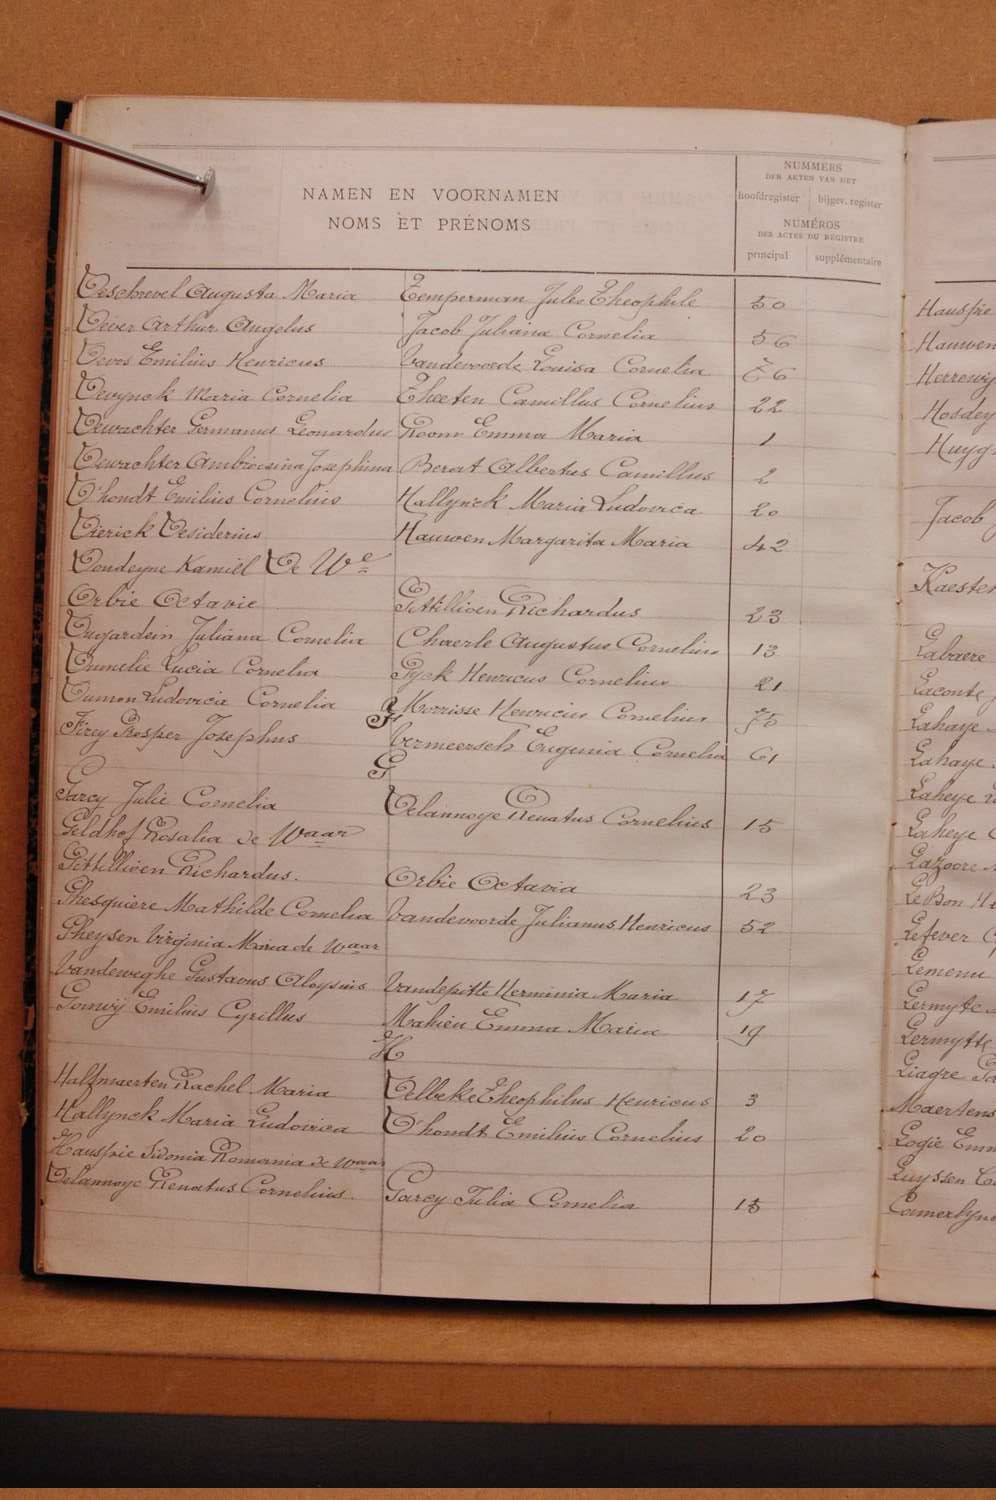 NAMEN EN VOORNAMEN
NOMS ET PRÉNOMS
NUMMERS
DER AKTEN VAN HET
hoofdregister bijgev. register
NUMÉROS
DES ACTES DU REGISTRE
principal supplémentaire
Deschrevel Augusta Maria Temperman Jules Theophile 50
Dever Arthur Angelus Jacob Juliana Cornelia 56
Devos Emilius Henricus Vandevoorde Louisa Cornelia 76
Devynck Maria Cornelia Theeten Camillus Cornelius 22
Dewachter Germanus Leonardus Room Emma Maria 1
Dewachter Ambrosina Josephina Berat Albertus Camillus 2
D'hondt Emilius Cornelius Hallynck Maria Ludovica 20
Dierick Desiderius Hauwen Margarita Maria 42
Dondeyne Kamiel De We
Orbie Octavie Gittillioen Richardus 23
Dugardein Juliana Cornelia Chaerle Augustus Cornelius 13
Dumelie Lucia Cornelia Gyck Henricus Cornelius 21
Dumon Ludovicia Cornelia Morrisse Henricius Cornelius 75
F
Firey Prosper Josephus Vermeersch Eugenia Cornelia 61
G
Garcy Julie Cornelia Delannoye Renatus Cornelius 15
Geldhof Rosalia de Waar
Gittillioen Richardus. Orbie Octavia 23
Ghesquiere Mathilde Cornelia Vandevoorde Julianus Henricus 52
Gheysen Virginia Maria de Waar
Vandeweghe Gustavus Aloysius Vandepitte Herminia Maria 17
Gonwij Emilius Cyrillus Mahieu Emma Maria 19
H
Halfmaerten Rachel Maria Delbeke Theophilus Henricus 3
Hallynck Maria Ludovica D'hondt Emilius Cornelius 20
Hauspie Sidonia Romania de Waar
Delannoye Renatus Cornelius. Garcy Julia Cornelia 15
Hauspie
Hauwen
Hosdey
Jacob
Labaere
Laconte
Lahaye
Lahaye
Laheye
Laheye
Lazoore
LeBon He
Lefever
Lemenu
Lermyte
Lermytte
Liagre
Maertens
Logie Emm
Luyssen